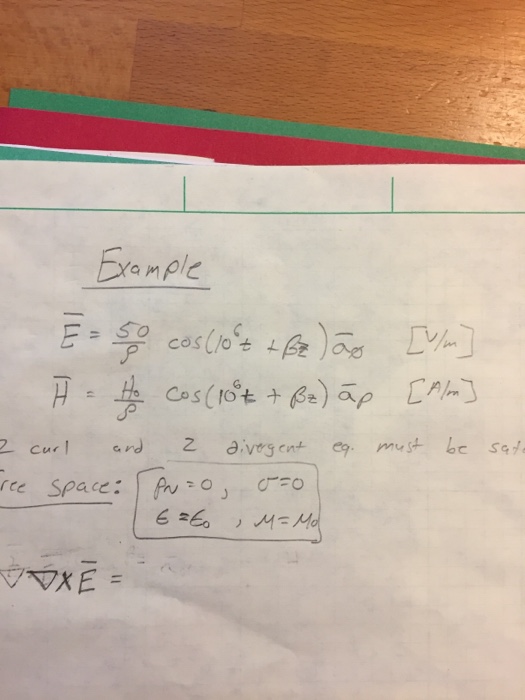 Example
E̅ = 50/ρ cos(10⁶t + βz) a̅ø [V/m]
H̅ = H₀/ρ cos(10⁶t + βz) a̅ρ [A/m]
2 curl and 2 divergent eq. must be
ree space: ρv = 0, σ=0
ε = ε₀, μ = μ₀
▽ ▽ x E̅ =